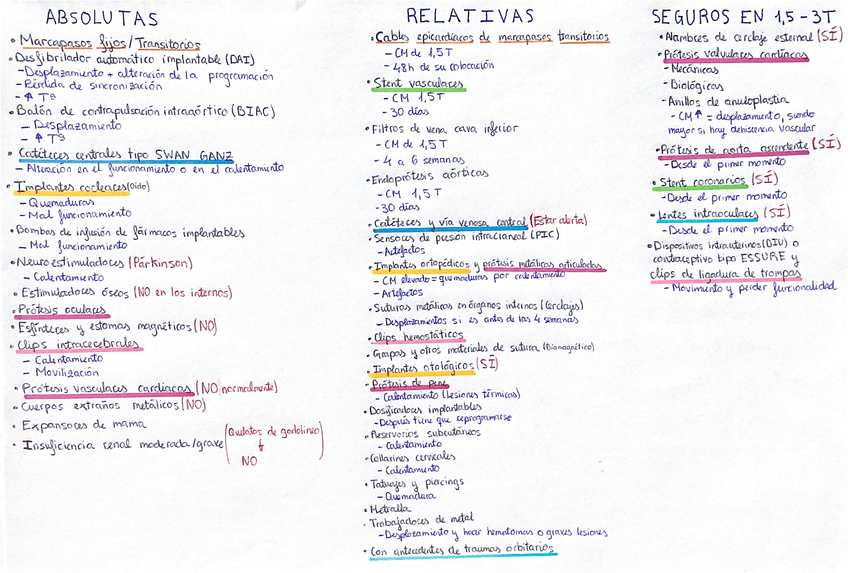 ABSOLUTAS
• Marcapasos fijos/Transitorios
• Desfibrilador automático implantable (DAI)
- Desplazamiento + alteración de la programación
- Pérdida de sincronización
- ↑ Tª
• Balón de contrapulsación intraaórtico (BIAC)
- Desplazamiento
- ↑ Tª
• Catéteres centrales tipo SWAN GANZ
- Alteración en el funcionamiento o en el calentamiento
• Implantes cocleares (Oído)
- Quemaduras
- Mal funcionamiento
• Bombas de infusión de fármacos implantables
- Mal funcionamiento
• Neuroestimuladores (Parkinson)
- Calentamiento
• Estimuladores óseos (NO en los internos)
• Prótesis oculares
• Esfínteres y estomas magnéticos (NO)
• Clips intracerebrales
- Calentamiento
- Movilización
• Prótesis vasculares cardíacas (NO normalmente)
• Cuerpos extraños metálicos (NO)
• Expansores de mama
• Insuficiencia renal moderada/grave (Quelatos de gadolineo
↓
NO)
RELATIVAS
• Cables epicardíacos de marcapasos transitorios
- CM de 1,5 T
- 48h de su colocación
• Stent vasculares
- CM 1,5T
- 30 días
• Filtros de vena cava inferior
- CM de 1,5 T
- 4 a 6 semanas
• Endoprótesis aórticas
- CM 1,5 T
- 30 días
• Catéteres y vía venosa central (Estar alerta)
• Sensores de presión intracraneal (PIC)
- Artefactos
• Implantes ortopédicos y prótesis metálicas articulares
- CM elevado = quemaduras por calentamiento
- Artefactos
• Suturas metálicas en órganos internos (Cerclajes)
- Desplazamientos si es antes de las 4 semanas
• Clips hemostáticos
• Grapas y otros materiales de sutura (Diamagnético)
• Implantes otológicos (SÍ)
• Prótesis de pene
- Calentamiento (Lesiones térmicas)
• Dosificadores implantables
- Después tiene que reprogramarse
• Reservorios subcutáneos
- Calentamiento
• Collarines cervicales
- Calentamiento
• Tatuajes y piercings
- Quemadura
• Metralla
• Trabajadores de metal
- Desplazamiento y hacer hematomas o graves lesiones
• Con antecedentes de traumas orbitarios
SEGUROS EN 1,5 - 3T
• Alambres de cerclaje esternal (SÍ)
• Prótesis valvulares cardíacas
- Mecánicas
- Biológicas
- Anillos de anuloplastia
- CM ↑ = desplazamiento, siendo
mayor si hay dehiscencia vascular
• Prótesis de aorta ascendente (SÍ)
- Desde el primer momento
• Stent coronarios (SÍ)
- Desde el primer momento
• Lentes intraoculares (SÍ)
- Desde el primer momento
• Dispositivos intrauterinos (DIU) o
contraceptivo tipo ESSURE y
clips de ligadura de trompas
- Movimiento y perder funcionalidad